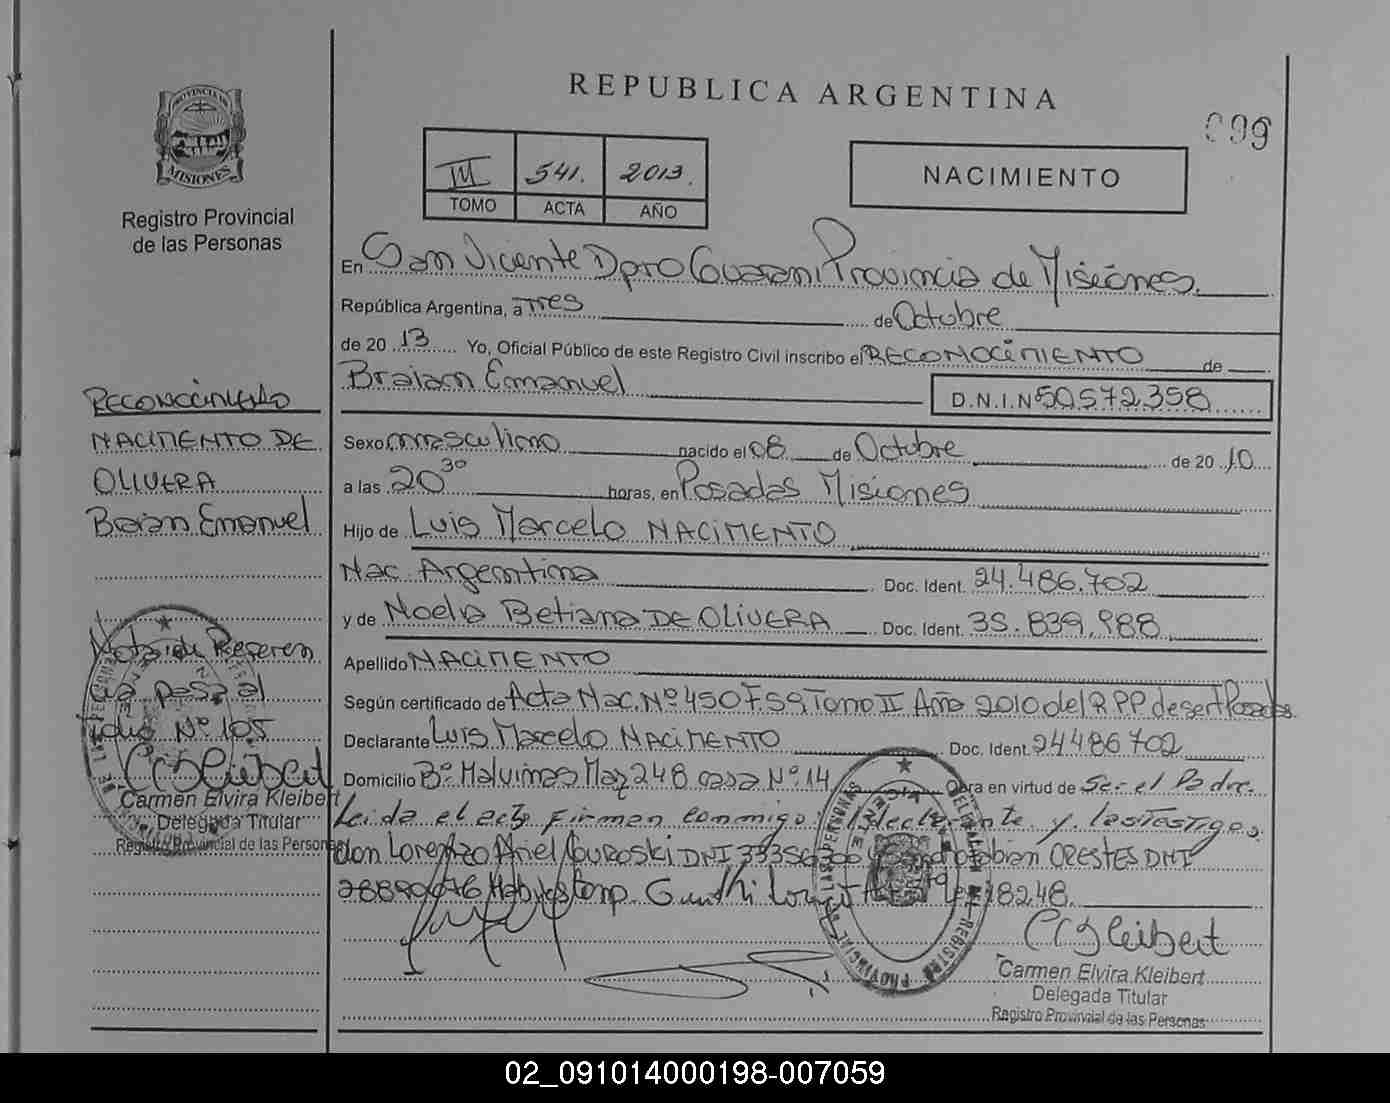 REPUBLICA ARGENTINA
099
PROVINCIA DE
MISIONES
Registro Provincial
de las Personas
III 541. 2013.
TOMO ACTA AÑO
NACIMIENTO
En San Vicente Dpto Guarani Provincia de Misiones.
República Argentina, a Tres de Octubre
de 2013 Yo, Oficial Público de este Registro Civil inscribo el RECONOCIMIENTO de
Braian Emanuel D.N.I.Nº 50.572.358
Sexo masculino nacido el 08 de Octubre de 2010
a las 20 30 horas, en Posadas Misiones
Hijo de Luis Marcelo NACIMENTO
Nac. Argentina Doc. Ident. 24.486.702
y de Noelia Betiana DE OLIVERA Doc. Ident. 35.839.988
Apellido NACIMENTO
Según certificado de Acta Nac. Nº 450 F. 59 Tomo II Año 2010 del R.P.P. de Posadas
Declarante Luis Marcelo NACIMENTO Doc. Ident. 24486702
Domicilio Bº Malvinas Maz 248 casa Nº 14 Obra en virtud de Ser el Padre.
Leida el acta firman conmigo: el declarante y los testigos
don Lorenzo Ariel DNI ORESTES DNI
18248.
RECONOCIMIENTO
NACIMENTO DE
OLIVERA
Braian Emanuel
Nota de Referen
cia pasa al
folio Nº 105
CEKleibert
Carmen Elvira Kleibert
Delegada Titular
Registro Provincial de las Personas
CEKleibert
Carmen Elvira Kleibert
Delegada Titular
Registro Provincial de las Personas
02_091014000198-007059